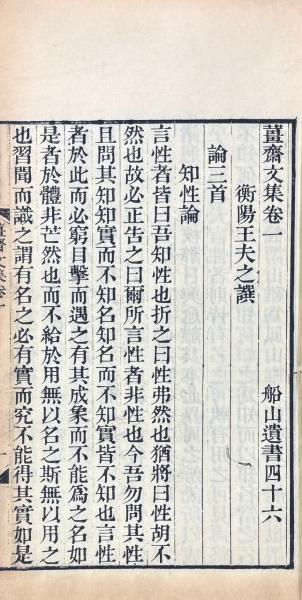 薑齋文集卷一
船山遺書四十六
衡陽王夫之譔
論三首
知性論
言性者皆曰吾知性也折之曰性弗然也猶將曰性胡不
然也故必正告之曰爾所言性者非性也今吾勿問其性
且問其知知實而不知名知名而不知實皆不知也言性
者於此而必窮目擊而遇之有其成象而不能爲之名如
是者於體非芒然也而不給於用無以名之斯無以用之
也習聞而識之謂有名之必有實而究不能得其實如是